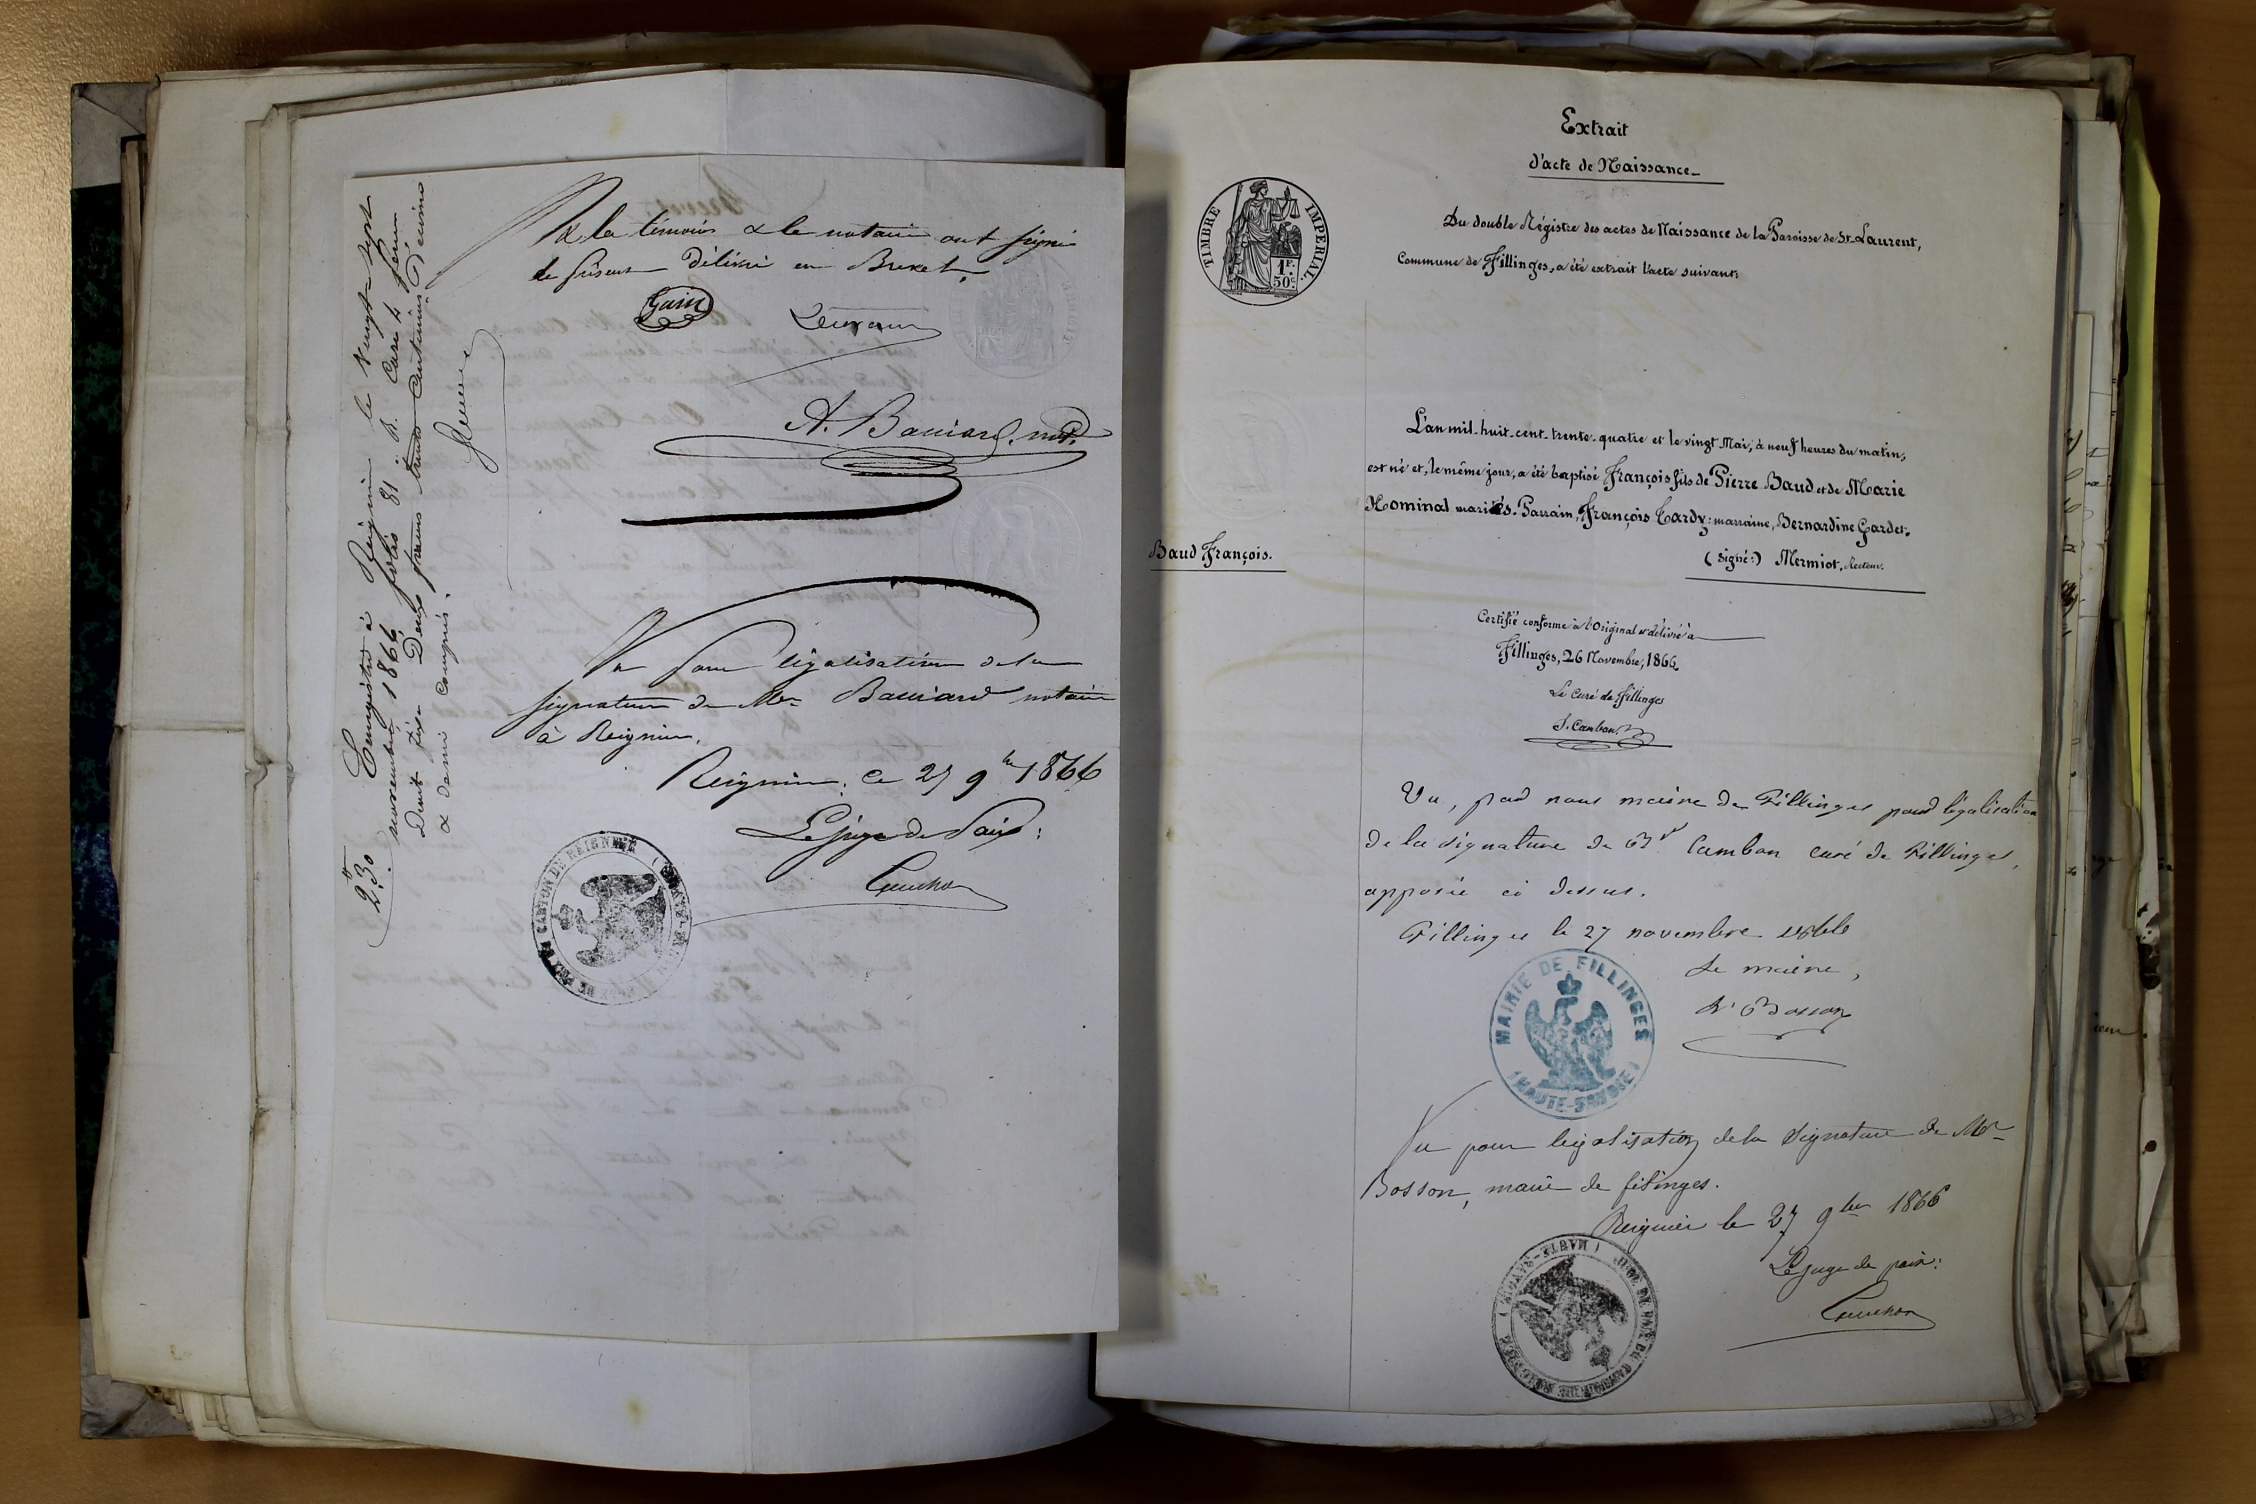 & les témoins & le notaire ont signé
le présent délivré en Brevet.
A. Bauiard, not.
Vu pour légalisation de la
signature de Me Bauiard notaire
à Reignier.
Reignier, ce 27 9bre 1866
Le juge de Paix:
Enregistré à Reignier le vingt-sept
novembre 1866 folio 81 R. Case 4. Reçu
Droit fixe Deux francs trente centimes Décime
& demi compris.
2.30
Extrait
d'acte de Naissance
Du double Régistre des actes de Naissance de la Paroisse de St. Laurent,
Commune de Fillinges, a été extrait l'acte suivant:
TIMBRE IMPERIAL
1F.
50c.
L'an mil-huit-cent-trente-quatre et le vingt Mai, à neuf heures du matin,
est né et, le même jour, a été baptisé François fils de Pierre Baud et de Marie
Nominal mariés. Parrain, François Tardy: marraine, Bernardine Gardet.
Baud François.
(Signé:) Mermiot, Recteur.
Certifié conforme à l'Original et délivré à
Fillinges, 26 Novembre, 1866.
Le Curé de Fillinges
J. Cambon
Vu, par nous maire de Fillinges pour légalisation
de la signature de Mr Cambon curé de Fillinges,
apposée ci dessus.
Fillinges le 27 novembre 1866
Le maire,
Bosson
MAIRIE DE FILLINGES
(HAUTE-SAVOIE)
Vu pour légalisation de la signature de Mr
Bosson, maire de filinges.
Reignier le 27 9bre 1866
Le juge de paix: